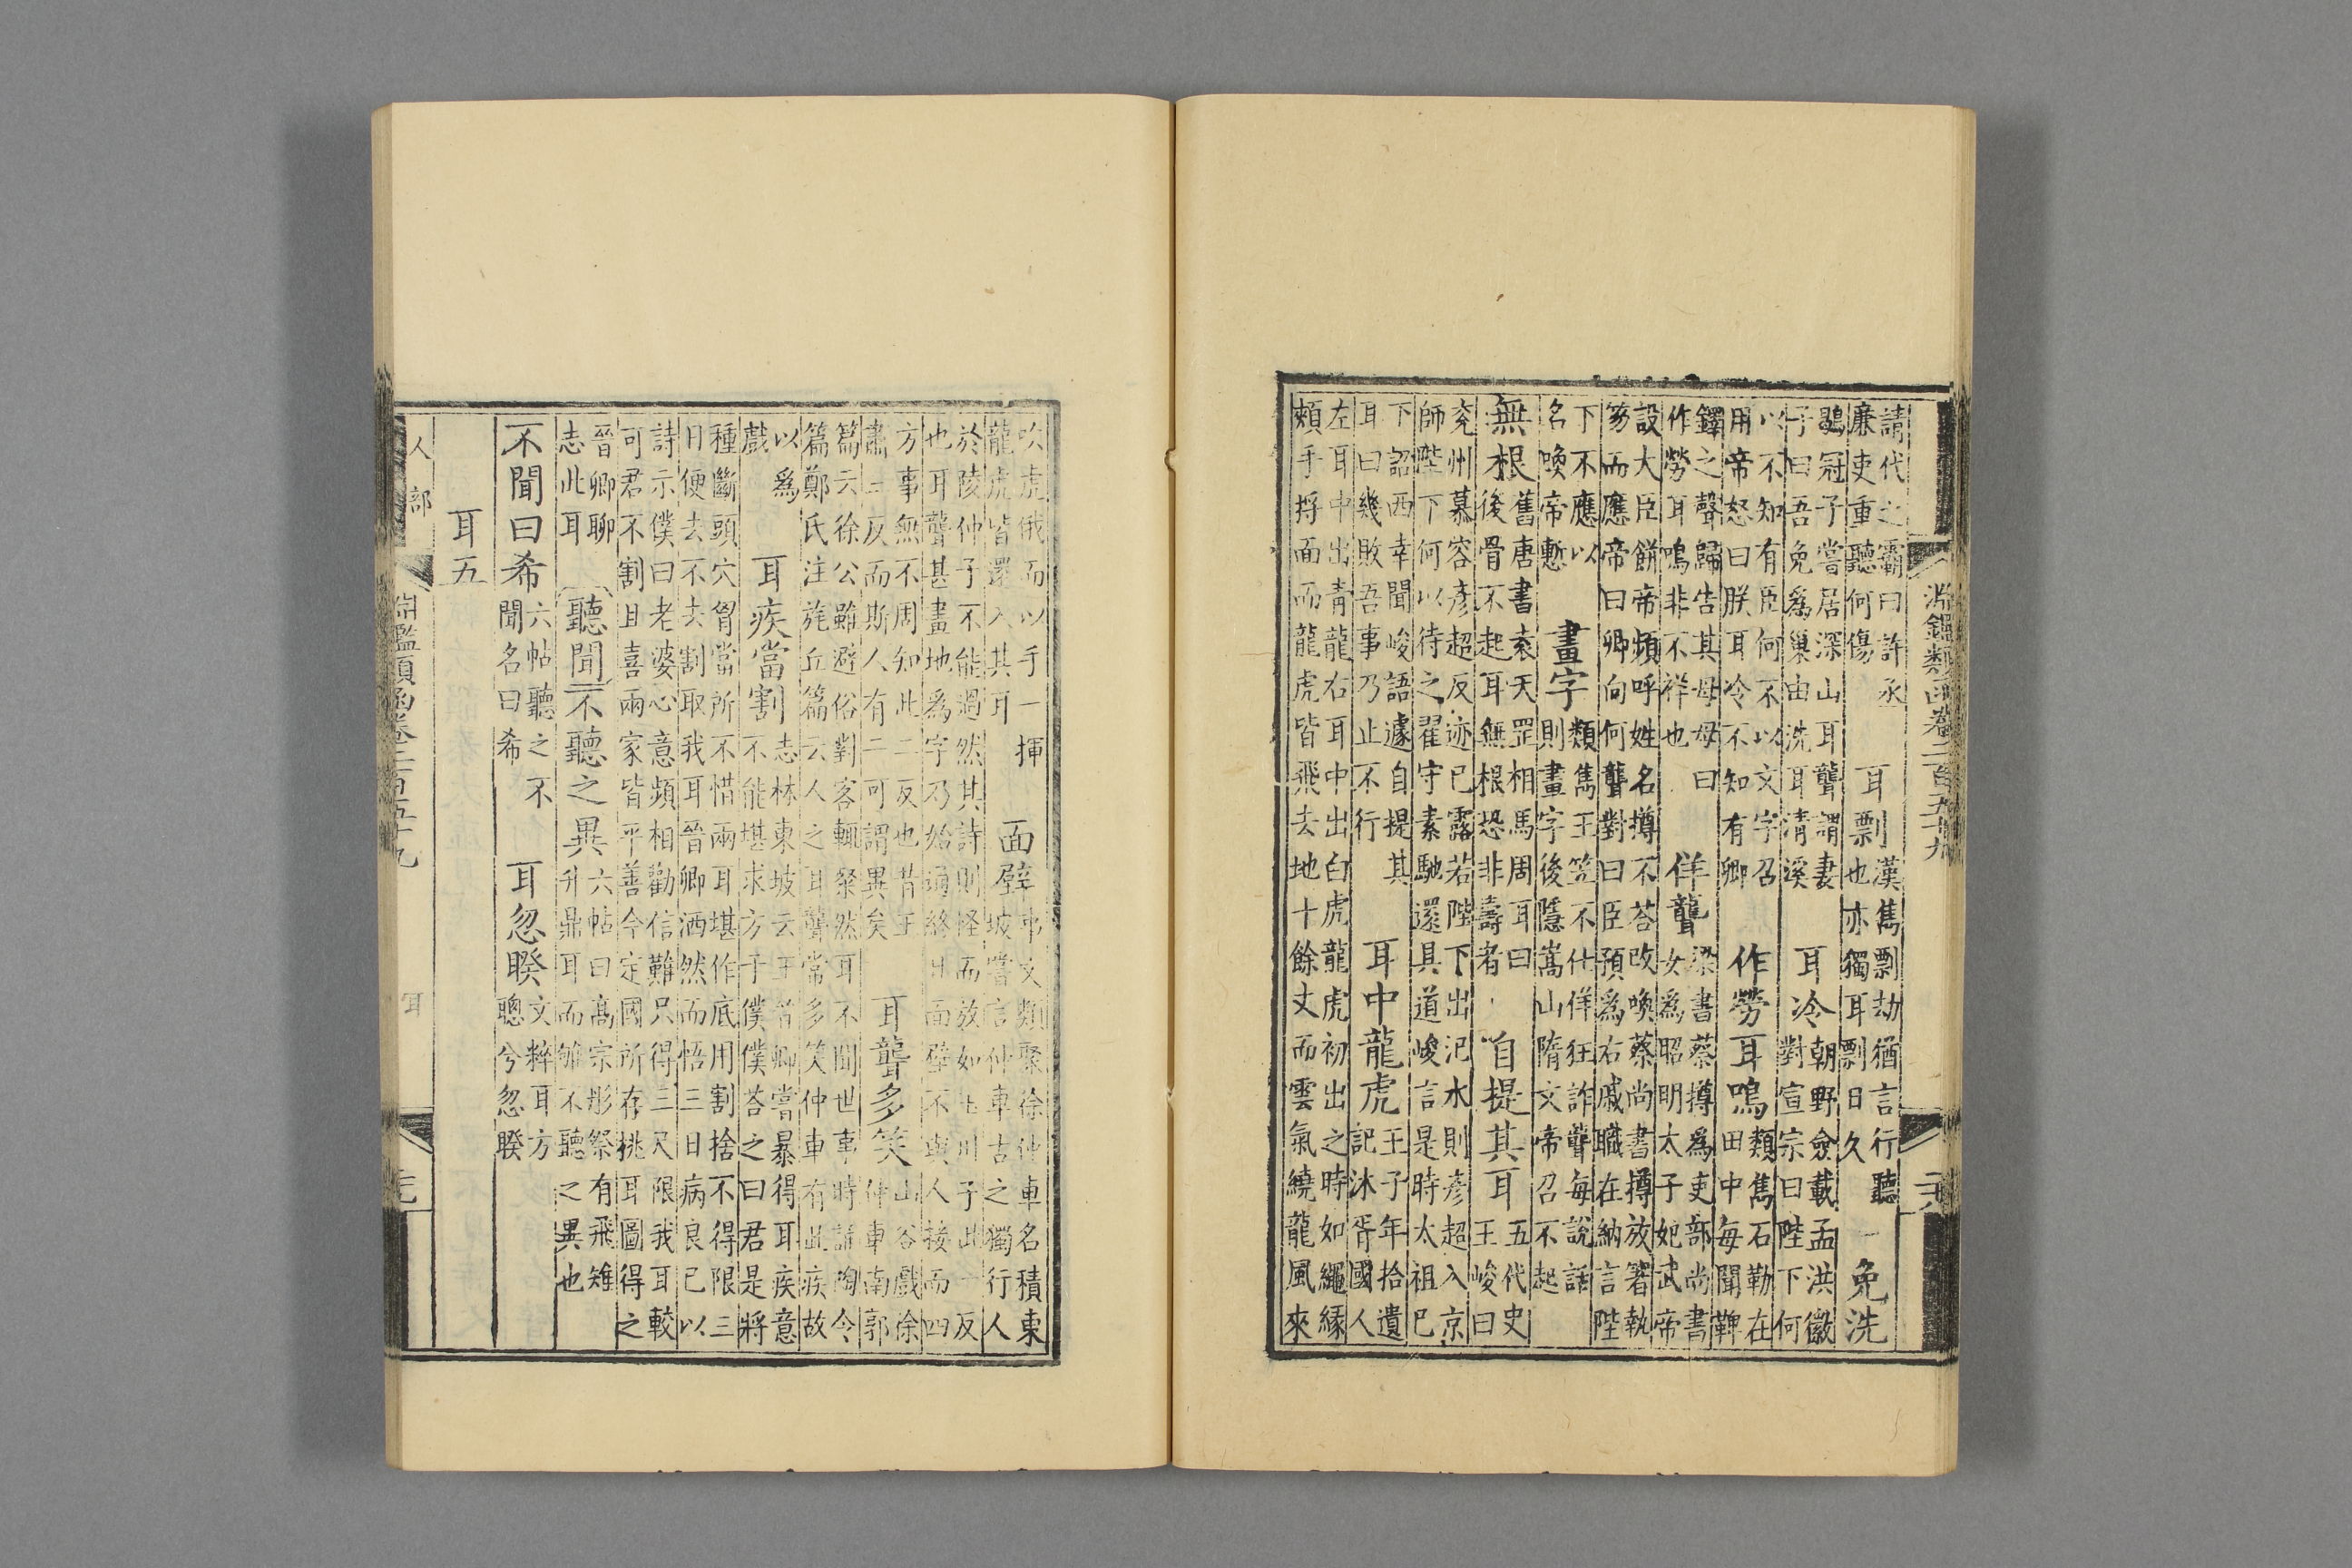 淵鑑類函卷二百五十九
請代之霸曰許丞廉吏重聽何傷 耳剽 漢雋剽劫猶言行聽也亦獨耳剽日久 免洗
鶡冠子嘗居深山耳聾謂妻子曰吾免為巢由洗耳清溪 耳冷 朝野僉載孟洪徽對宣宗曰陛下何
以不知有臣何不以文字召用帝怒曰朕耳冷不知有卿 作勞耳鳴 類雋石勒在田中每聞鞞
鐸之聲歸告其母母曰作勞耳鳴非不祥也 佯聾 梁書蔡撙為吏部尚書女為昭明太子妃武帝
設大臣餅帝頻呼姓名撙不荅改喚蔡尚書撙放筯執笏而應帝曰卿向何聾對曰臣預為右戚職在納言陛
下不應以名喚帝慙 畫字 類雋王笠不仕佯狂詐聾每說話則畫字後隱嵩山隋文帝召不起
無根 舊唐書袁天罡相馬周耳曰後骨不起耳無根恐非壽者 自提其耳 五代史王峻曰
兗州慕容彥超反迹已露若陛下出汜水則彥超入京師陛下何以待之翟守素馳還具道峻言是時太祖已
下詔西幸聞峻語遽自提其耳曰幾敗吾事乃止不行 耳中龍虎 王子年拾遺記沐胥國人
左耳中出青龍右耳中出白虎龍虎初出之時如繩緣頰手捋面而龍虎皆飛去地十餘丈而雲氣繞龍風來
吹虎俄而以手一揮龍虎皆還入其耳 面壁 事文類聚徐仲車名積東坡嘗言仲車古之獨行人
於陵仲子不能過然其詩則怪而放如玉川子此一反也耳聾甚畫地為字乃始通終日面壁不與人接而四
方事無不周知此二反也昔王肅三反而斯人有二可謂異矣 耳聾多笑 山谷戲徐仲車南郭
篇云徐公雖避俗對客輒粲然耳不聞世事時誦陶令篇鄭氏注旄丘篇云人之耳聾常多笑仲車有此疾故
以為戲 耳疾當割 志林東坡云王晉卿嘗暴得耳疾意不能堪求方于僕僕荅之曰君是將
種斷頭穴胷當所不惜兩耳堪作底用割捨不得限三日便去不去割取我耳晉卿洒然而悟三日病良已以
詩示僕曰老婆心意頻相勸信難只得三尺限我耳較可君不割且喜兩家皆平善今定國所存挑耳圖得之
晉卿聊志此耳 聽聞 不聽之異 六帖曰高宗肜祭有飛雉升鼎耳而雊不聽之異也
不聞曰希 六帖聽之不聞名曰希 耳忽睽 文粹耳方聰兮忽睽
耳五
人部 淵鑑類函卷二百五十九 耳